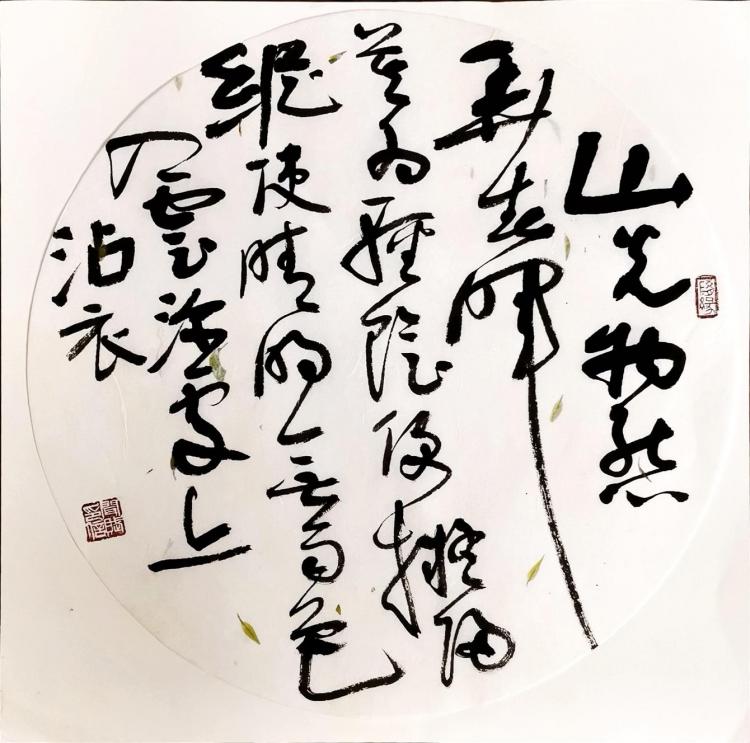 山光物態
弄春暉
莫為輕陰便擬歸
縱使晴明無雨色
入雲深處亦
沾衣